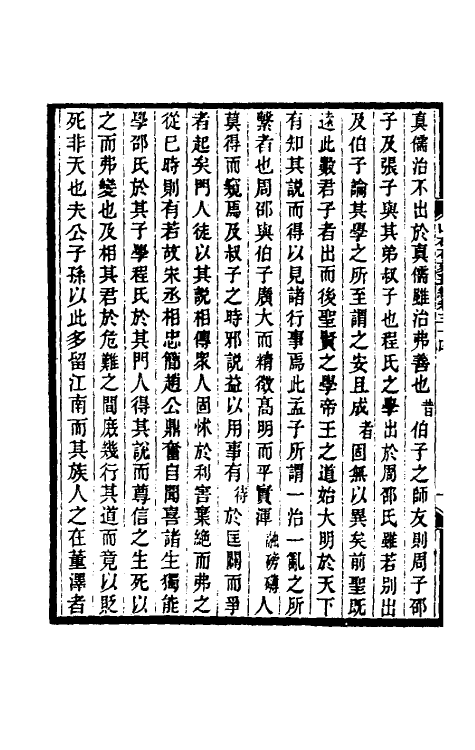 真儒治不出於真儒雖治弗善也昔伯子之師友則周子邵
子及張子與其弟叔子也程氏之學出於周邵氏雖若別出
及伯子論其學之所至謂之安且成者固無以異矣前聖既
遠此數君子者出而後聖賢之學帝王之道始大明於天下
有知其說而得以見諸行事焉此孟子所謂一治一亂之所
繫者也周邵與伯子廣大而精微高明而平實渾融磅礴人
莫得而窺焉及叔子之時邪說益以用事有待於匡闢而爭
者起矣門人徒以其說相傳衆人固怵於利害棄絶而弗之
從已時則有若故宋丞相忠簡趙公鼎奮自聞喜諸生獨能
學邵氏於其子學程氏於其門人得其說而尊信之生死以
之而弗變也及相其君於危難之間庶幾行其道而竟以貶
死非天也夫公子孫以此多留江南而其族人之在董澤者